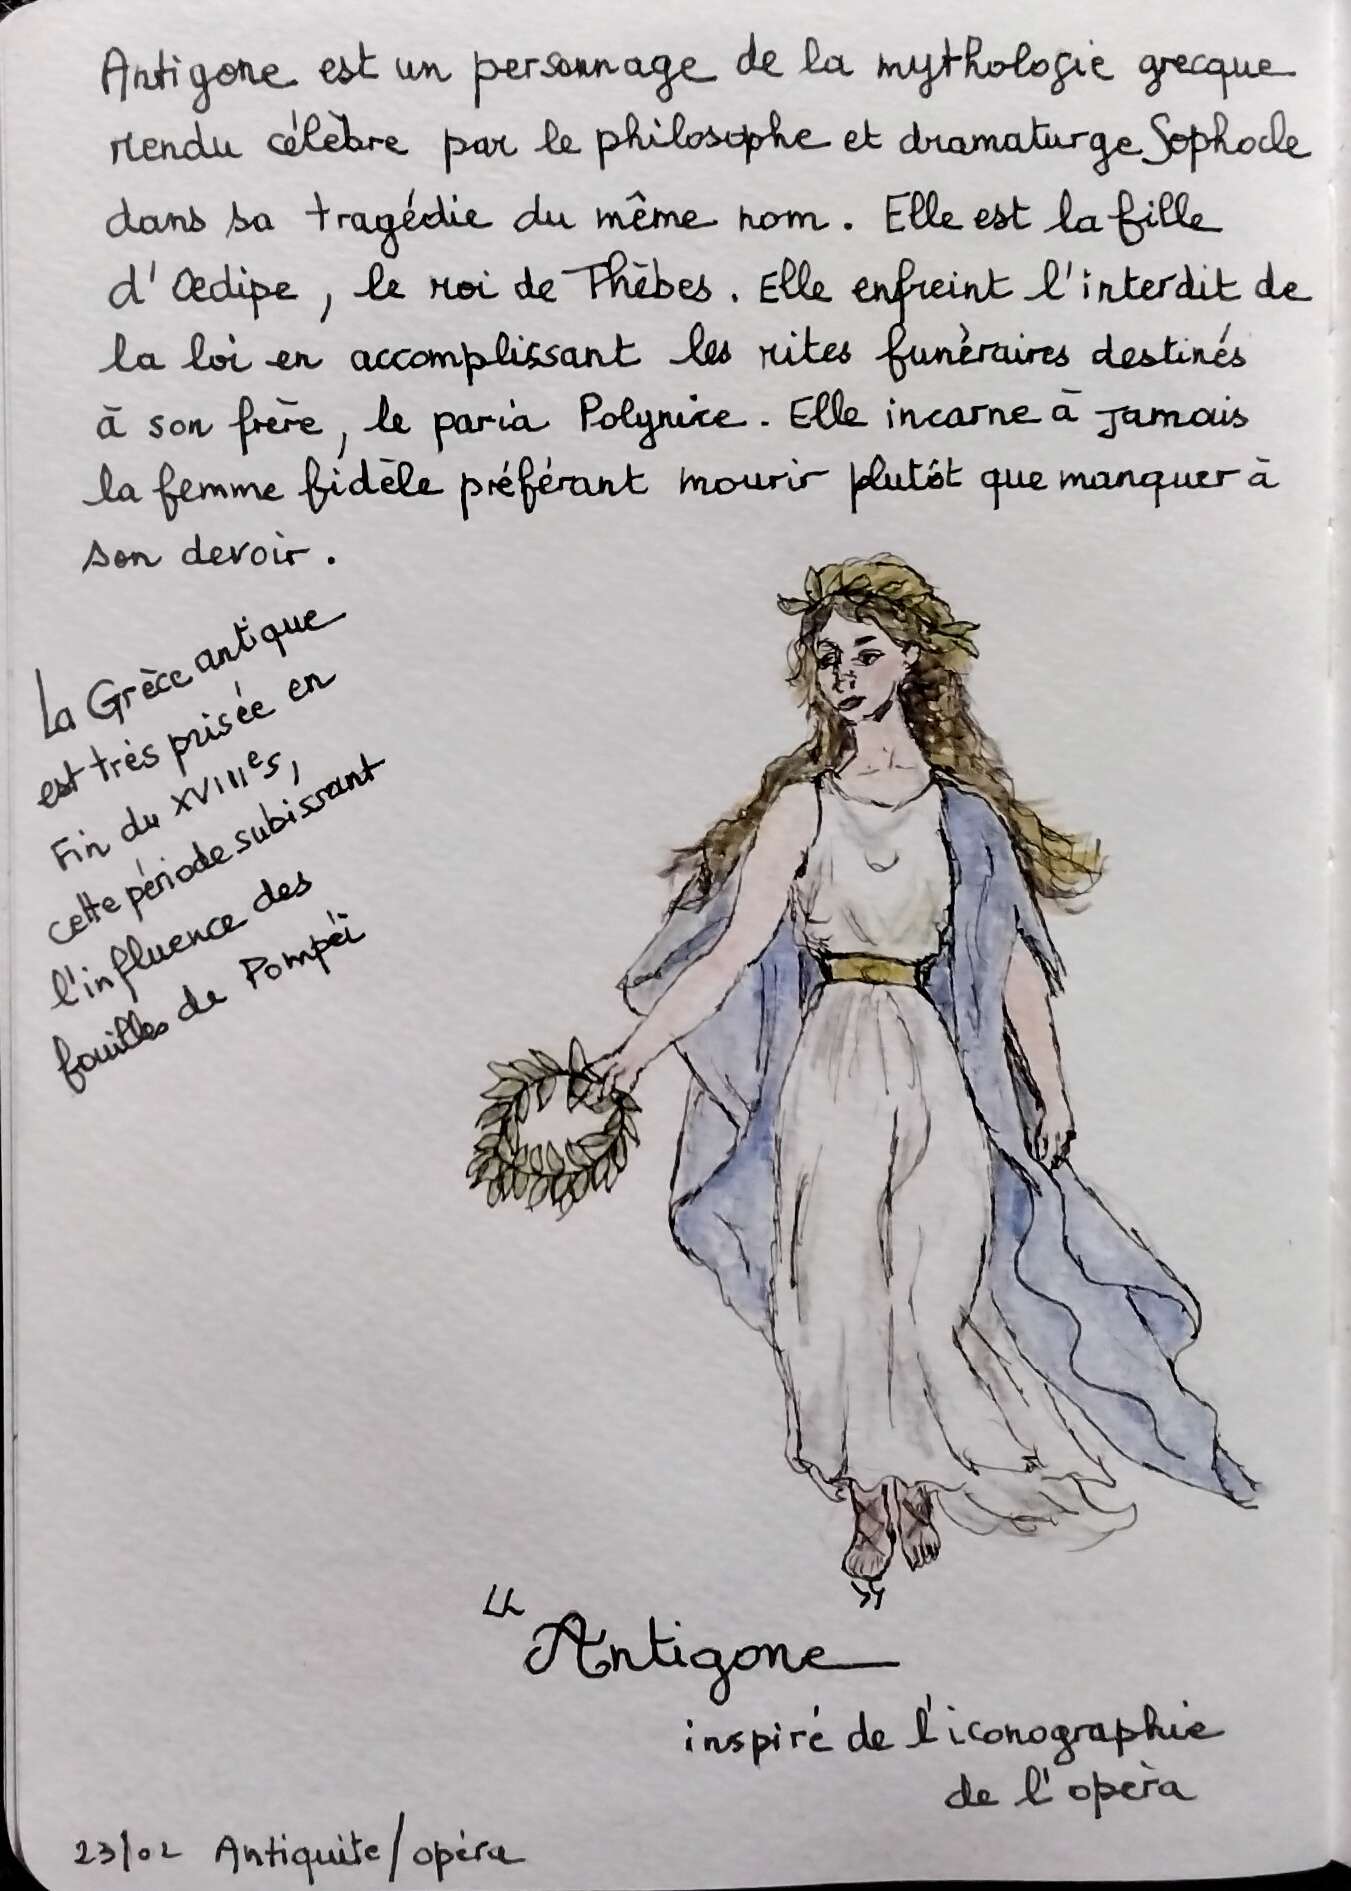 Antigone est un personnage de la mythologie grecque
rendu célèbre par le philosophe et dramaturge Sophocle
dans sa tragédie du même nom. Elle est la fille
d'Œdipe, le roi de Thèbes. Elle enfreint l'interdit de
la loi en accomplissant les rites funéraires destinés
à son frère, le paria Polynice. Elle incarne à jamais
la femme fidèle préférant mourir plutôt que manquer à
son devoir.
La Grèce antique
est très prisée en
Fin du XVIIIes,
cette période subissant
l'influence des
fouilles de Pompéi
"Antigone"
inspiré de l'iconographie
de l'opéra
23/02 Antiquite/opéra